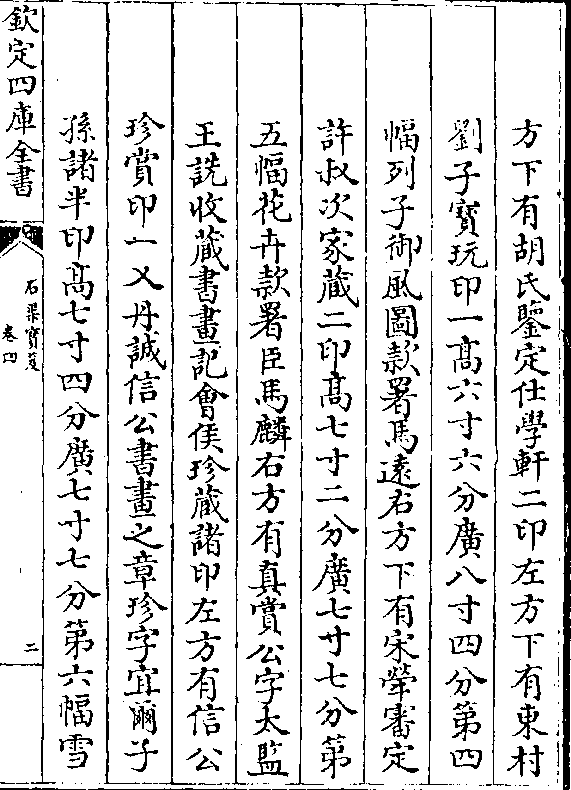 方下有胡氏鑒定仕學軒二印左方下有東村
劉子寶玩印一高六寸六分廣八寸四分第四
幅列子御風圖款署馬遠右方下有宋犖審定
許叔次家藏二印高七寸二分廣七寸七分第
五幅花卉款署臣馬麟右方有真賞公字太監
王詵收藏書畫記會侯珍藏諸印左方有信公
珍賞印一又丹誠信公書畫之章珍字宜爾子
孫諸半印高七寸四分廣七寸七分第六幅雪
欽定四庫全書
石渠寶笈
卷四
二